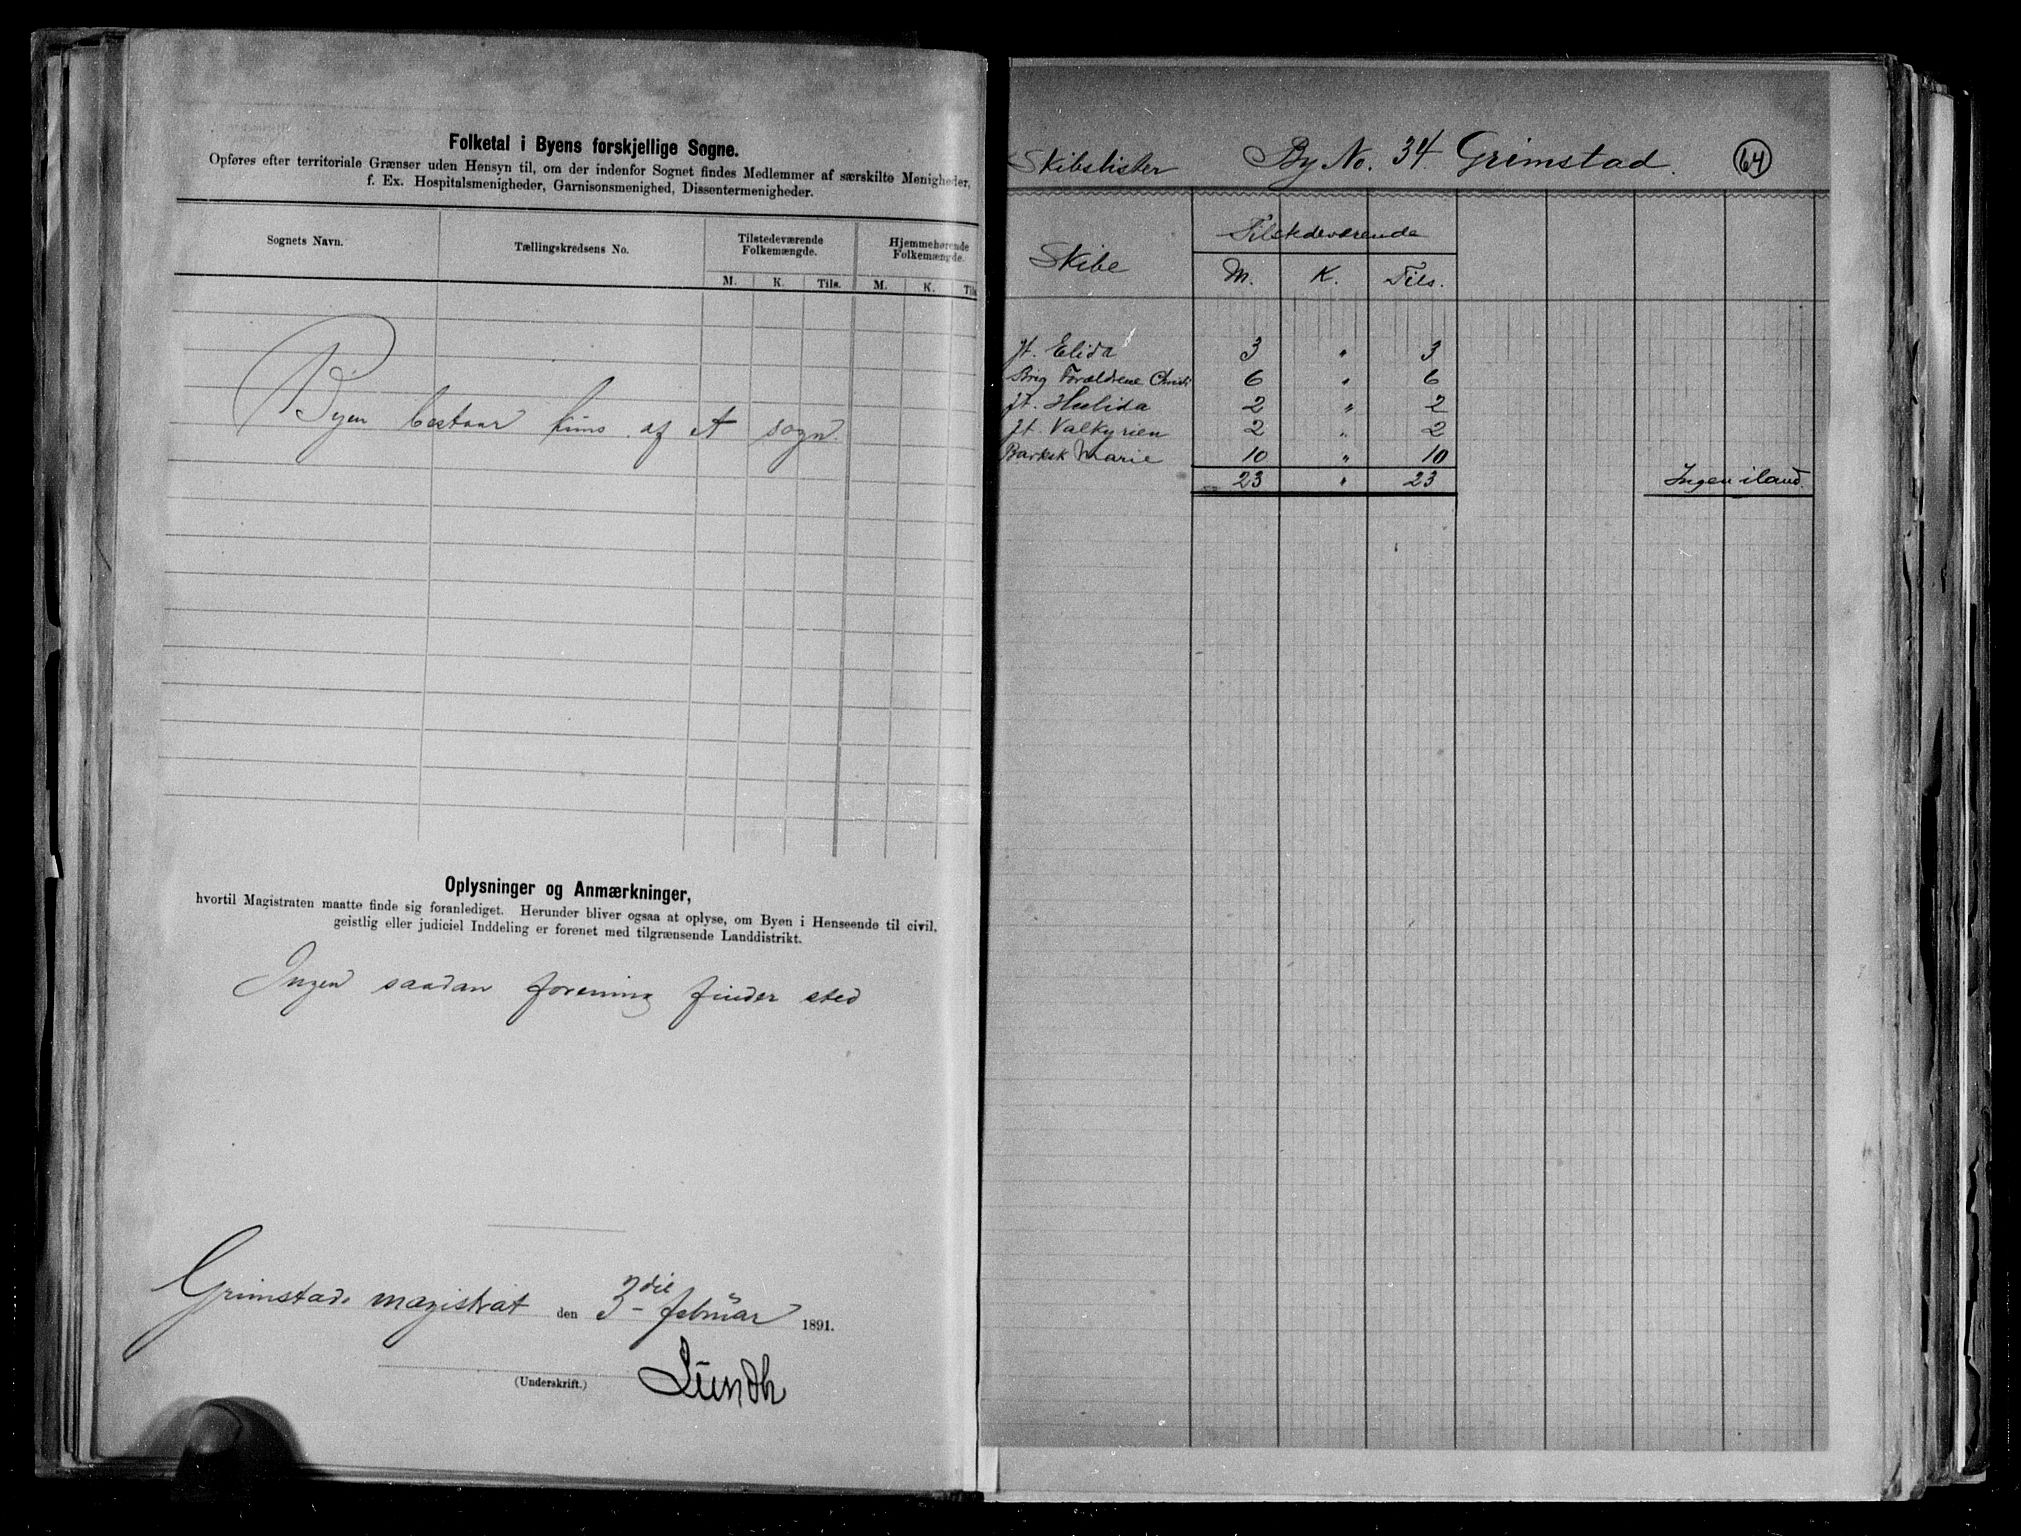 Folketal i Byens forskjellige Sogne.
Opføres efter territoriale Grænser uden Hensyn til, om der indenfor Sognet findes Medlemmer af særskilte Menigheder,
f. Ex. Hospitalsmenigheder, Garnisonsmenighed, Dissentermenigheder.
Sognets Navn. Tællingskredsens No. Tilstedeværende Folkemængde. Hjemmehørende Folkemængde.
M. K. Tils. M. K. Tils
Byen bestaar kuns af et sogn.
Oplysninger og Anmærkninger,
hvortil Magistraten maatte finde sig foranlediget. Herunder bliver ogsaa at oplyse, om Byen i Henseende til civil,
geistlig eller judiciel Inddeling er forenet med tilgrænsende Landdistrikt.
Ingen saadan forening finder sted
Grimstads magistrat den 3die februar 1891.
Lundh
(Underskrift.)
Skibslister By No. 34 Grimstad. 64
Tilstedeværende
Skibe M. K. Tils.
Jt. Elida 3 " 3
Brig Forældrene 6 " 6
Jt. 2 " 2
Jt. Valkyrien 2 " 2
Barksk Marie 10 " 10
23 " 23 Ingen iland.